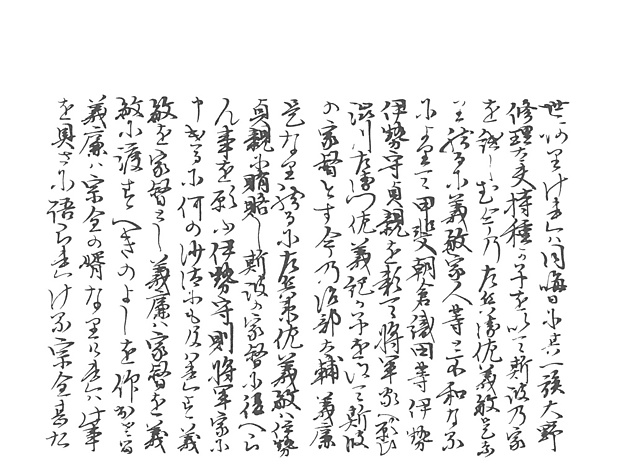 世一аりけれハ同晦日に其一族大野
修理大夫持種か子を以て斯波乃家
を継しむ今乃左兵衛佐義敏是なり
然るに義敏家人等と不和なる
によりて甲斐朝倉織田等伊勢
伊勢守貞親を頼て将軍家へ願ひ
渋川左衛門佐義記か子を以て斯波
の家督とす今乃治部大輔義廉
是なり然るに左兵衛佐義敏ハ伊勢
貞親に賄賂し斯波の家督に復へら
ん事を願ふ伊勢守則将軍家に
申けるに何の沙汰にも及ハすして義
敏を家督とし義廉ハ家督を義
敏に渡すへきのよしを仰出さる
義廉ハ宗全の婿なりけれハ此事
を具さに語られけれハ宗全甚た